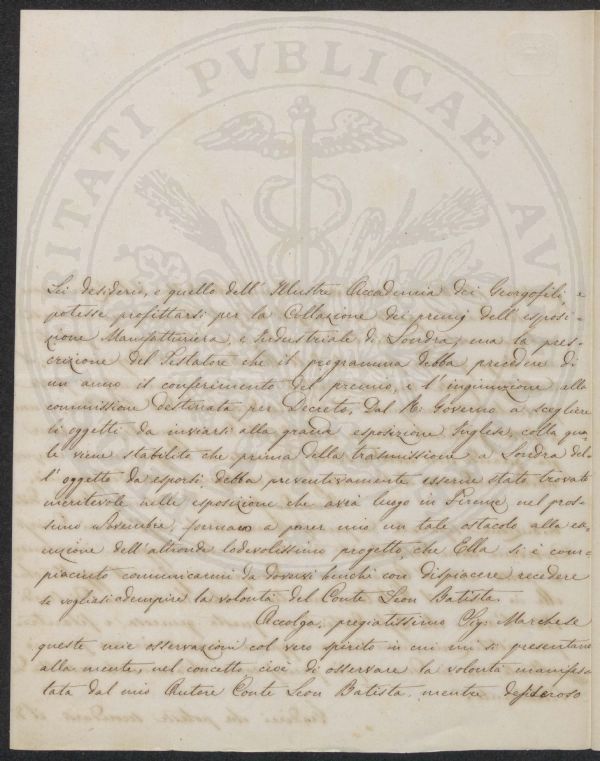 Lei desiderio, e quello dell' Illustre Accademia dei Georgofili, e
potesse profittarsi per la Collazione dei premj dell' esposi=
zione Manufatturiera, e Industriale di Londra; ma la pres=
crizione del Testatore che il programma debba precedere di
un anno il conferimento del premio, e l' ingiunzione alla
commissione destinata per Decreto, dal R: Governo a scegliere
li oggetti da inviarsi alla grande esposizione Inglese, colla qua=
le viene stabilito che prima della trasmissione a Londra del=
l' oggetto da esporsi debba preventivamente esserne stato trovato
meritevole nelle esposizione che avrà luogo in Firenze nel pros=
simo Novembre, formano a parer mio un tale ostacolo alla ese=
cuzione dell' altronde lodevolissimo progetto che Ella si è com=
piaciuto comunicarmi da doversi benchè con dispiacere recedere
se vogliasi adempire la volontà del Conte Leon Batista.
Accolga, pregiatissimo Sig: Marchese
queste mie osservazioni col vero spirito in cui mi si presentano
alla mente, nel concetto cioè di osservare la volontà manifes=
tata dal mio Autore Conte Leon Batista, mentre desideroso
PVBLICAE